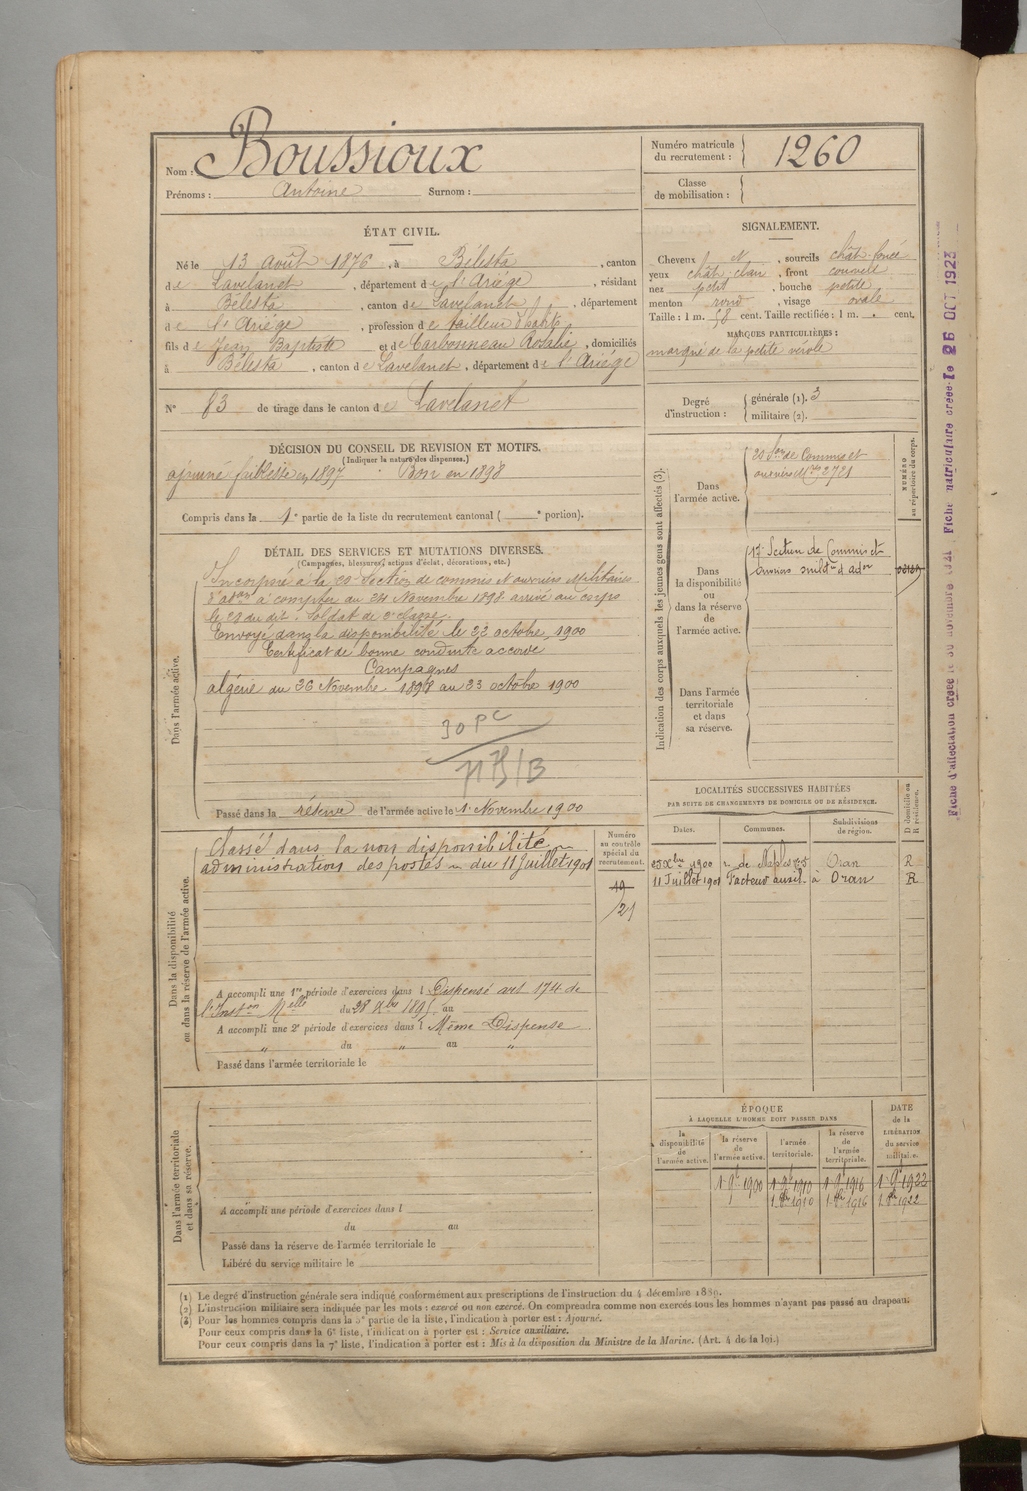 Nom : Boussioux
Prénoms : Antoine Surnom :
Numéro matricule
du recrutement : 1260
Classe
de mobilisation :
ÉTAT CIVIL.
Né le 13 août 1876, à Bélesta, canton
de Lavelanet, département de l'Ariége, résidant
à Bélesta, canton de Lavelanet, département
de l'Ariége, profession de tailleur d'habits
fils de Jean Baptiste et de Carbonneau Rosalie, domiciliés
à Bélesta, canton de Lavelanet, département de l'Ariége
N° 83 de tirage dans le canton de Lavelanet
SIGNALEMENT.
Cheveux N, sourcils chât. foncé
yeux chât. clair, front couvert
nez petit, bouche petite
menton rond, visage ovale
Taille : 1 m. 58 cent. Taille rectifiée : 1 m. cent.
MARQUES PARTICULIÈRES :
marqué de la petite vérole
Degré
d'instruction :
générale (1). 3
militaire (2).
DÉCISION DU CONSEIL DE REVISION ET MOTIFS.
(Indiquer la nature des dispenses.)
ajourné faiblesse en 1897 Bon en 1898
Compris dans la 1e partie de la liste du recrutement cantonal ( e portion).
DÉTAIL DES SERVICES ET MUTATIONS DIVERSES.
(Campagnes, blessures, actions d'éclat, décorations, etc.)
Dans l'armée active.
Incorporé à la 20e Section de commis et ouvriers militaires
d'adon à compter du 24 Novembre 1898 arrivé au corps
le 29 du dit. Soldat de 2e classe.
Envoyé dans la disponibilité le 22 octobre 1900
Certificat de bonne conduite accordé
Campagnes
algérie du 26 Novembre 1898 au 23 octobre 1900
30 PC
Passé dans la réserve de l'armée active le 1er Novembre 1900
Indication des corps auxquels les jeunes gens sont affectés (3).
NUMÉRO
au répertoire du corps.
Dans
l'armée active.
20e Son de Commis et
ouvriers Mres 2721
Dans
la disponibilité
ou
dans la réserve
de
l'armée active.
17e Section de Commis et
ouvriers milres d'adon
Dans l'armée
territoriale
et dans
sa réserve.
LOCALITÉS SUCCESSIVES HABITÉES
PAR SUITE DE CHANGEMENTS DE DOMICILE OU DE RÉSIDENCE.
Dates. Communes. Subdivisions de région. D domicile ou R résidence.
25 Xbre 1900 r. de Naples Oran R
11 Juillet 1901 facteur auxil. à Oran R
Dans la disponibilité
ou dans la réserve de l'armée active.
Numéro
au contrôle
spécial du
recrutement.
19
21
Classé dans la non disponibilité
administration des postes du 11 Juillet 1901
A accompli une 1re période d'exercices dans l Dispensé art 174 de
l'Inston Melle du 28 Xbre 1895 au
A accompli une 2e période d'exercices dans l Même Dispense
" du " au "
Passé dans l'armée territoriale le
Dans l'armée territoriale
et dans sa réserve.
A accompli une période d'exercices dans l
du au
Passé dans la réserve de l'armée territoriale le
Libéré du service militaire le
ÉPOQUE
À LAQUELLE L'HOMME DOIT PASSER DANS
DATE
de la
LIBÉRATION
du service
militaire.
la disponibilité de l'armée active.
la réserve de l'armée active.
l'armée territoriale.
la réserve de l'armée territoriale.
1 9bre 1900 1 9bre 1910 1 9bre 1916 1 9bre 1922
1 8bre 1910 1 8bre 1916 1 8bre 1922
(1) Le degré d'instruction générale sera indiqué conformément aux prescriptions de l'instruction du 4 décembre 1889.
(2) L'instruction militaire sera indiquée par les mots : exercé ou non exercé. On comprendra comme non exercés tous les hommes n'ayant pas passé au drapeau.
(3) Pour les hommes compris dans la 5e partie de la liste, l'indication à porter est : Ajourné.
Pour ceux compris dans la 6e liste, l'indication à porter est : Service auxiliaire.
Pour ceux compris dans la 7e liste, l'indication à porter est : Mis à la disposition du Ministre de la Marine. (Art. 4 de la loi.)
Fiche d'affectation créée le 30 novembre 1921 Fiche matriculaire créée le 26 OCT 1923